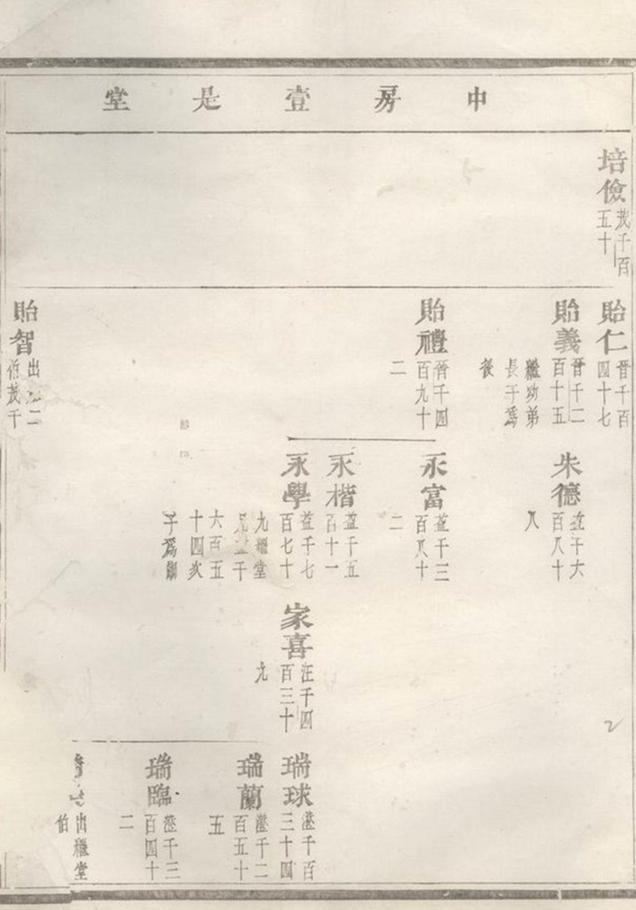 中房壹是堂
培儉
茂千百
五十
貽仁
晉千百
四十七
貽義
晉千二
百十五
繼功弟
長子為
後
貽禮
晉千四
百九十
二
貽智
出
伯茂千
朱德
益千六
百八十
八
永富
益千三
百八十
二
永楷
益千五
百十一
永學
益千七
百七十
九繼堂
兄益千
六百五
十四次
子為嗣
家喜
汪千四
百三十
九
瑞球
港千百
三十四
瑞蘭
港千二
百五十
五
瑞臨
港千三
百四十
二
出繼堂
伯